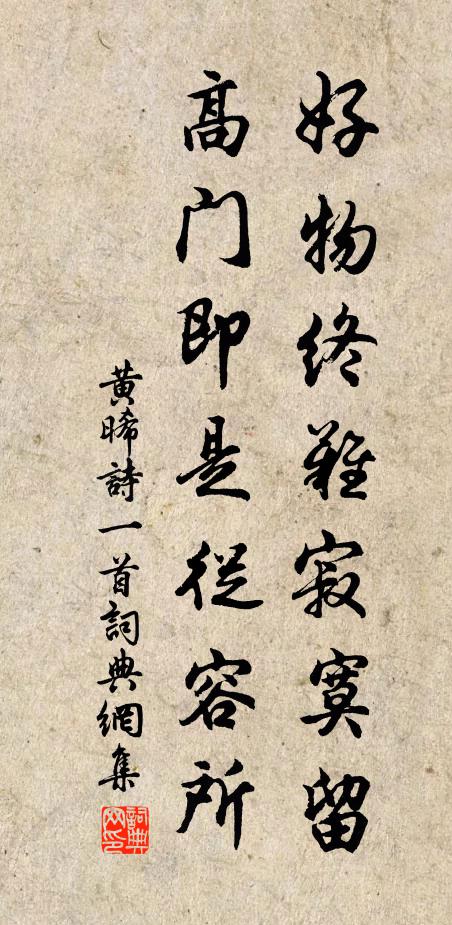 好物终难寂寞留
高门即是従容所
黄晞詩一首詞典網集
詞典
网印